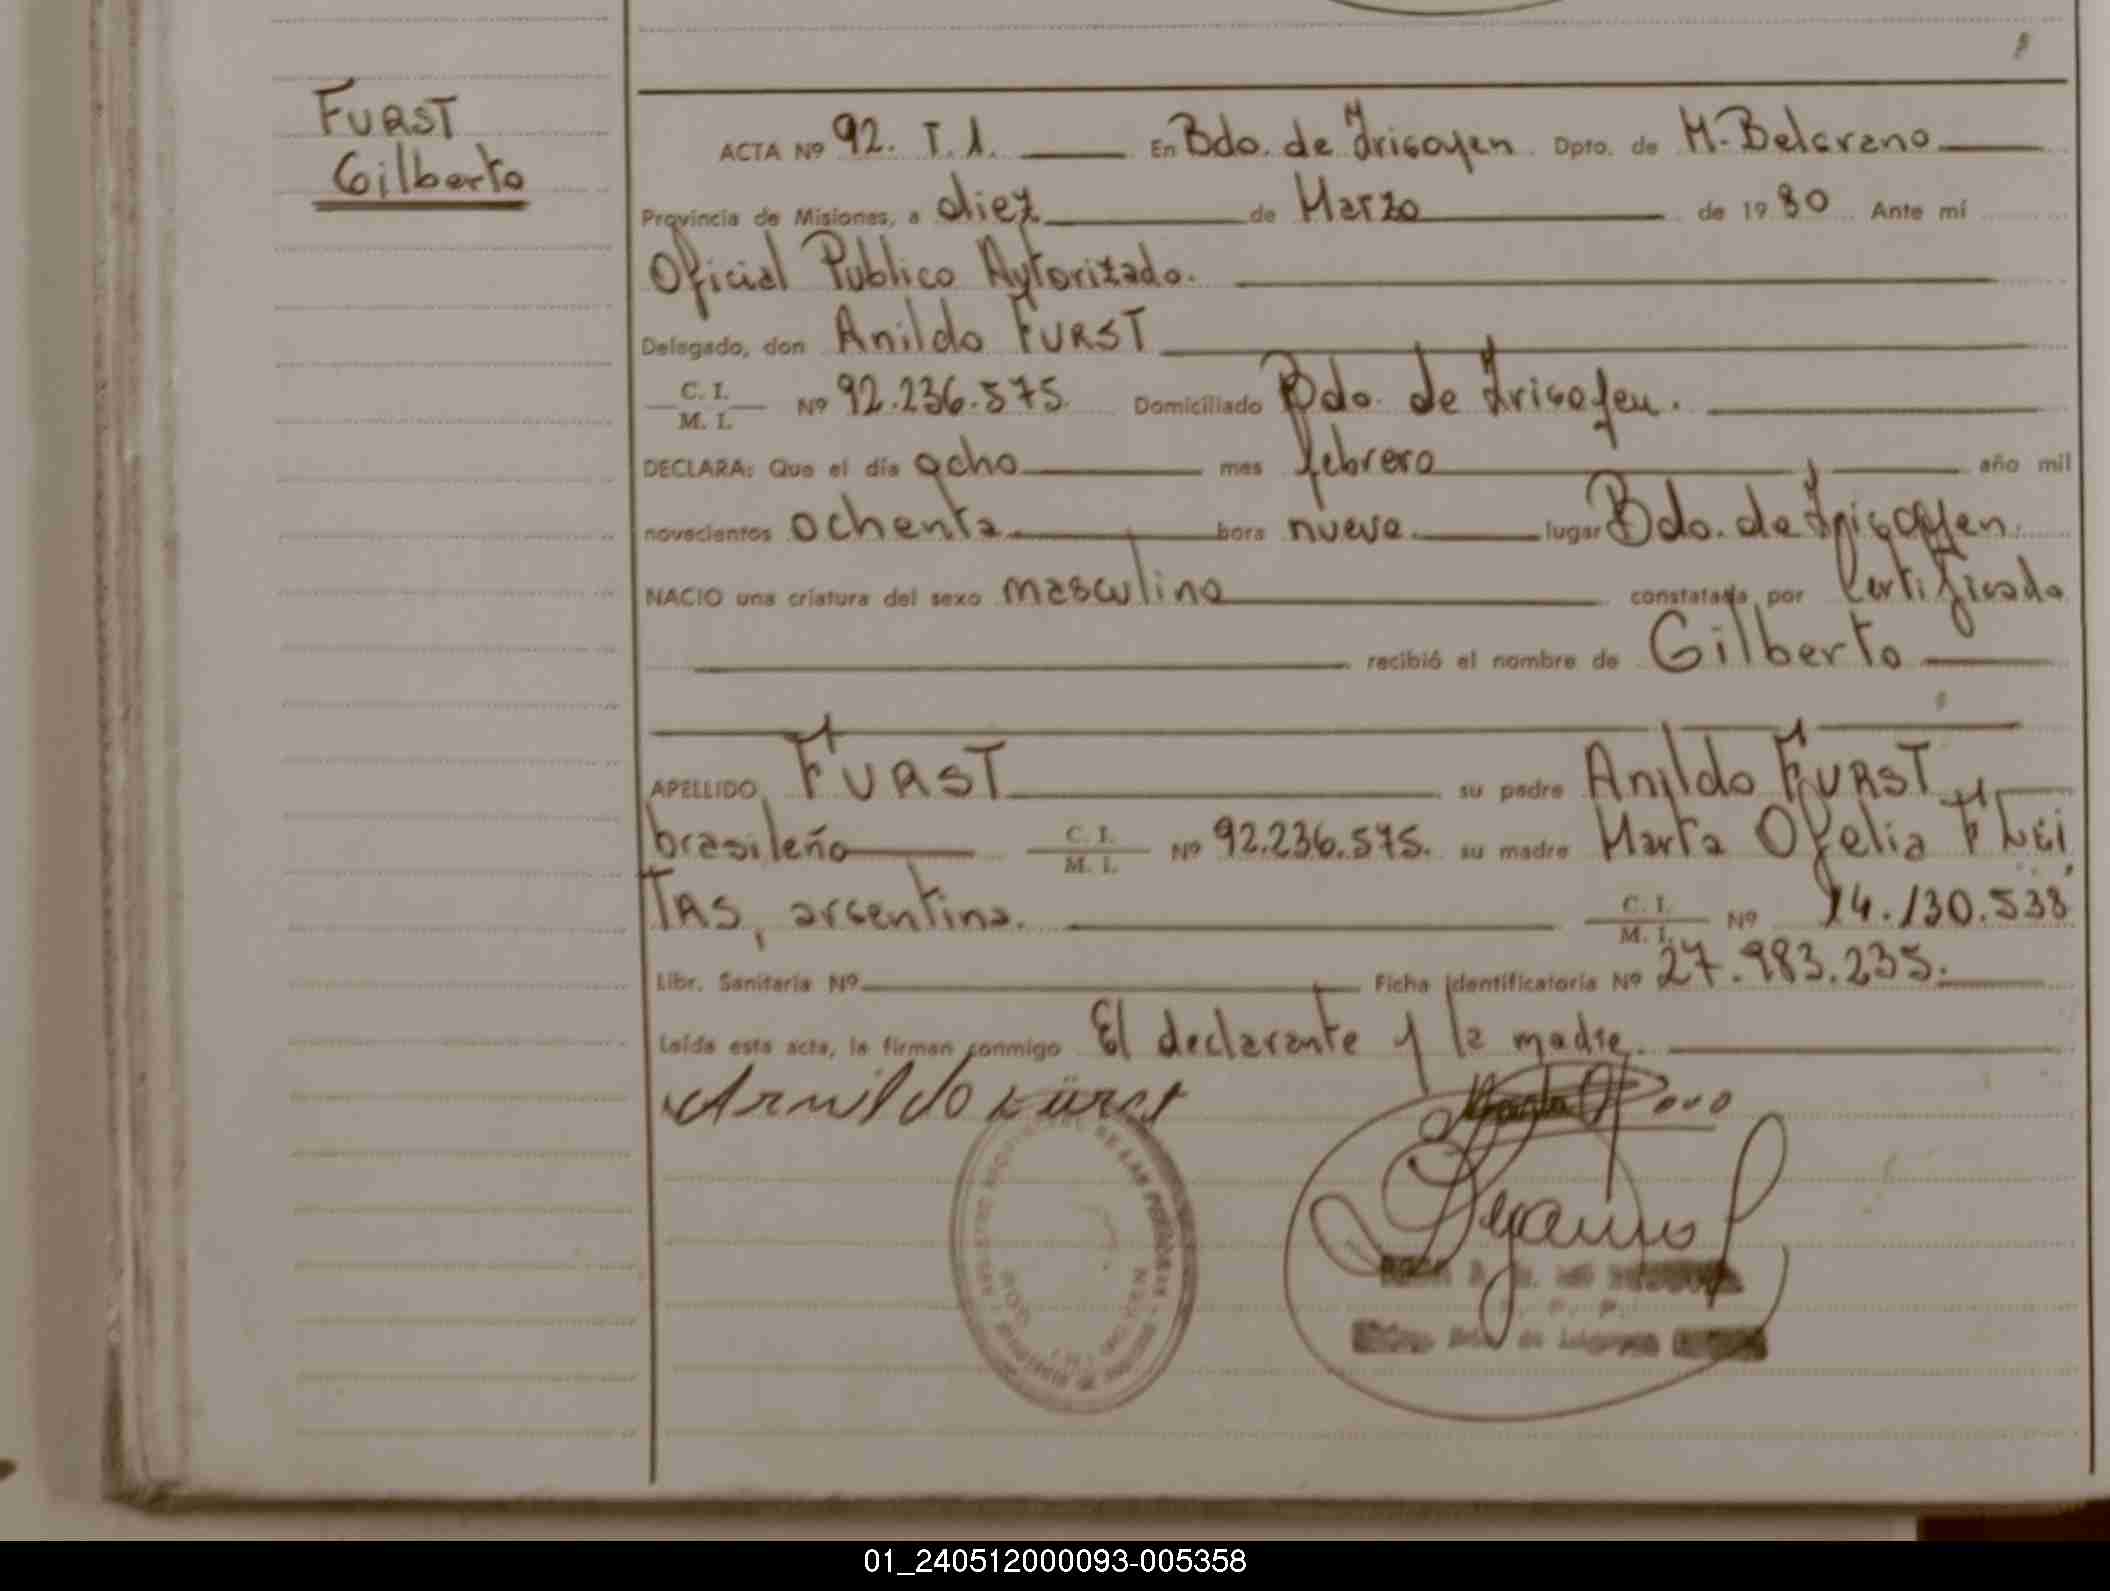 FURST
Gilberto
ACTA Nº 92. T. 1. En Bdo. de Irigoyen Dpto. de M. Belgrano
Provincia de Misiones, a diez de Marzo de 1980 Ante mí
Oficial Publico Autorizado.
Delegado, don Anildo FURST
C. I.
M. I. Nº 92.236.575. Domiciliado Bdo. de Irigoyen.
DECLARA: Que el día ocho mes febrero año mil
novecientos ochenta hora nueve. lugar Bdo. de Irigoyen.
NACIO una criatura del sexo masculino constatada por Certificado
recibió el nombre de Gilberto
APELLIDO FURST su padre Anildo FURST,
brasileño C. I.
M. I. Nº 92.236.575. su madre Marta Ofelia FLEI
TAS, argentina. C. I.
M. I. Nº 14.130.538
Libr. Sanitaria Nº Ficha Identificatoria Nº 27.983.235.
Leída esta acta, la firman conmigo El declarante y la madre.
Arnildo Fürst
01_240512000093-005358